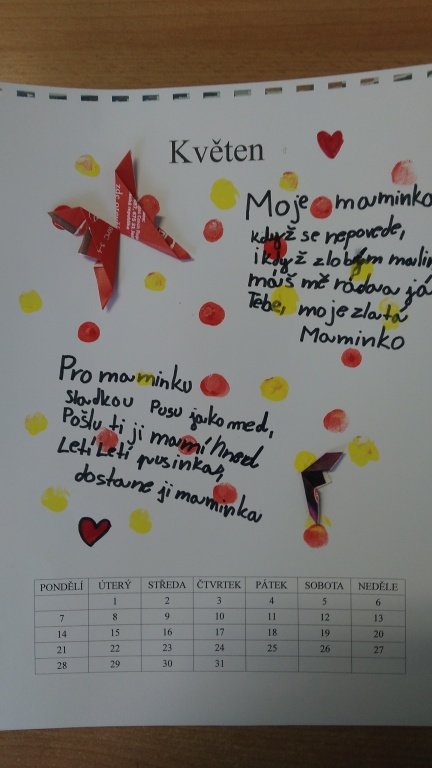 Květen
Moje maminko
když se nepovede,
i když zlobím
máš mě ráda a já
Tebe, moje zlatá
Maminko
Pro maminku
Sladkou Pusu jako med,
Pošlu ti ji mamí hned
Letí Letí pusinka,
dostane ji maminka
PONDĚLÍ ÚTERÝ STŘEDA ČTVRTEK PÁTEK SOBOTA NEDĚLE
1 2 3 4 5 6
7 8 9 10 11 12 13
14 15 16 17 18 19 20
21 22 23 24 25 26 27
28 29 30 31